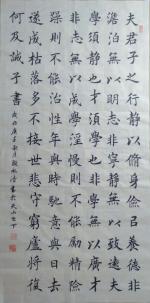 夫君子之行靜以脩身儉㠯養德非
澹泊無以明志非寧靜無以致遠夫
學須靜也才須學也非學無以廣才
非志無以成學淫慢則不能勵精險
躁則不能治性年與時馳意與日去
遂成枯落多不接世悲守窮廬將復
何及誡子書